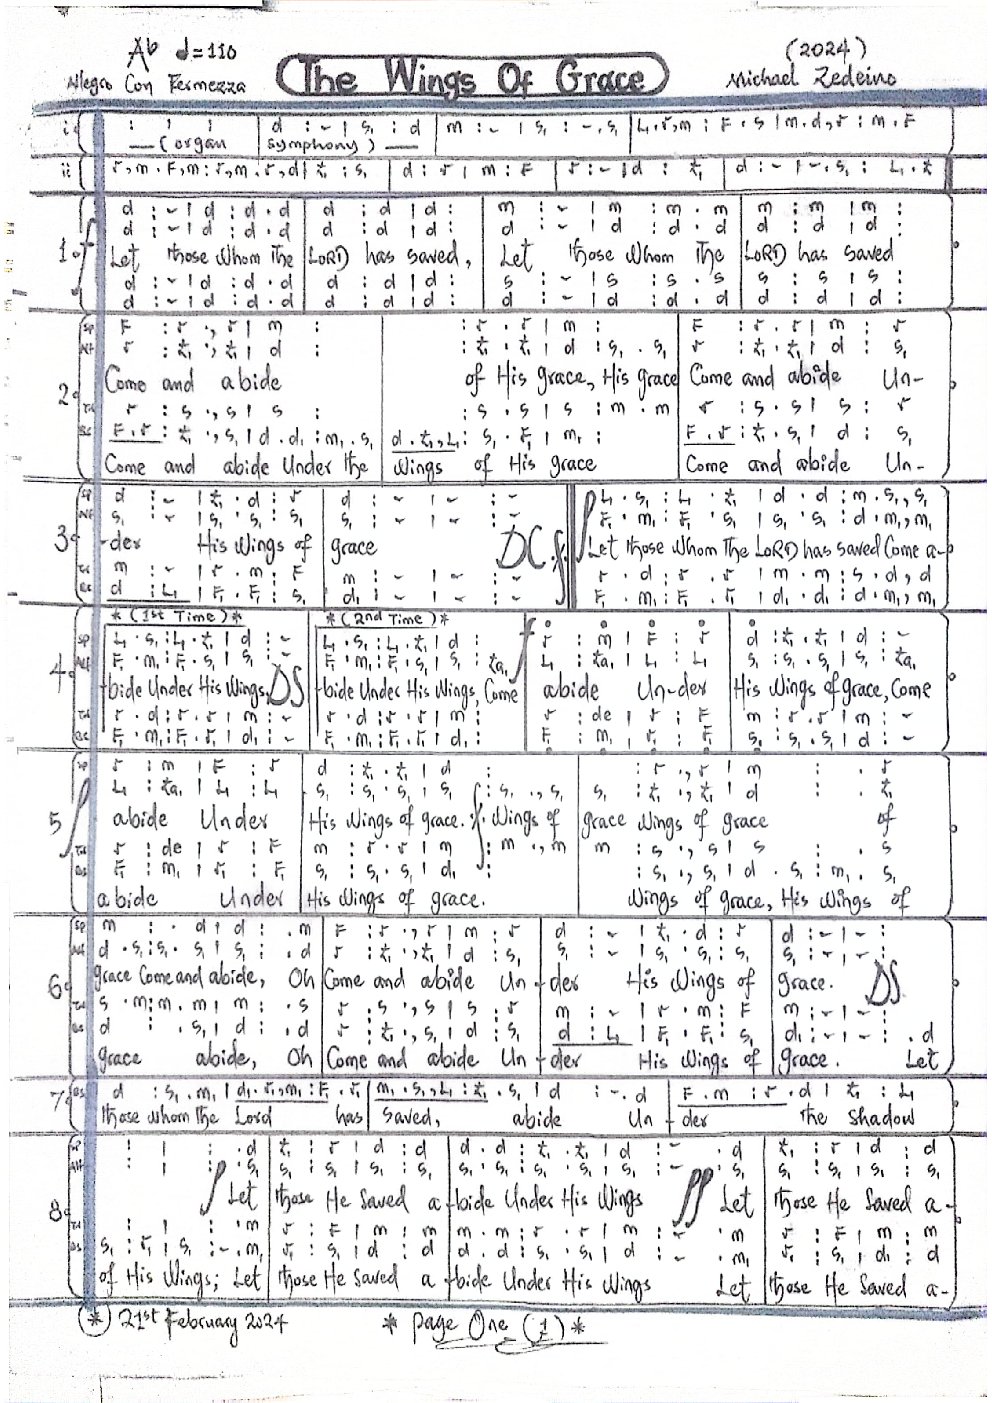 Ab d=110
Allegro Con Fermezza
The Wings Of Grace
(2024)
Michael Zedeino
i : : : | d : - | s, : d | m : - | s, : -.s,
(organ symphony)
ii | d : r | m : F | r : - | d : t,
1. f
d : - | d : d . d | d : d | d : | m : - | m : m . m | m : m | m :
d : - | d : d . d | d : d | d : | d : - | d : d . d | d : d | d :
Let those whom the LORD has saved, Let those whom the LORD has saved
d : - | d : d . d | d : d | d : | s : - | s : s . s | s : s | s :
d : - | d : d . d | d : d | d : | d : - | d : d . d | d : d | d :
2.
F : r ., r | m : | : r . r | m : | F : r . r | m : r
r : t, ., t, | d : | : t, . t, | d : s, . s, | r : t, . t, | d : s,
Come and abide of His grace, His grace Come and abide Un-
r : s ., s | s : | : s . s | s : m . m | r : s . s | s : r
F . r : t, ., s, | d . d, : m, . s, | d . t,, L, : s, . F, | m, : | F . r : t, . s, | d : s,
Come and abide Under the Wings of His grace Come and abide Un-
3.
d : - | t, . d : r | d : - | - : - | L, . s, : L, . t, | d . d : m . s,, s,
s, : - | s, . s, : s, | s, : - | - : - | F, . m, : F, . s, | s, . s, : d . m,, m,
-der His Wings of grace D.C. f. Let those Whom The LORD has saved Come a-
m : - | r . m : F | m : - | - : - | r . d : r . r | m . m : s . d, d
d : L, | F, . F, : s, | d, : - | - : - | F, . m, : F, . r, | d, . d, : d . m,, m,
4.
*(1st Time)* *(2nd Time)*
L, . s, : L, . t, | d : - | L, . s, : L, . t, | d : | r : m | F : r | d : t, . t, | d : -
F, . m, : F, . s, | s, : - | F, . m, : F, . s, | s, : ta, | L, : ta, | L, : L, | s, : s, . s, | s, : ta,
-bide Under His Wings, DS -bide Under His Wings, Come abide Un-der His Wings of grace, Come
r . d : r . r | m : - | r . d : r . r | m : | r : de | r : F | m : r . r | m : -
F, . m, : F, . r, | d, : - | F, . m, : F, . r, | d, : | F, : m, | r, : F, | s, : s, . s, | d : -
5.
r : m | F : r | d : t, . t, | d : | : r ., r | m : . r
L, : ta, | L, : L, | s, : s, . s, | s, : s, ., s, | s, : t, ., t, | d : . t,
abide Under His Wings of grace. Wings of grace Wings of grace of
r : de | r : F | m : r . r | m : m ., m | m : s ., s | s : . s
F, : m, | r, : F, | s, : s, . s, | d, : | : s, ., s, | d . s, : m, . s,
abide Under His Wings of grace. Wings of grace, His Wings of
6.
m : . d | d : . m | F : r ., r | m : r | d : - | t, . d : r | d : - | - :
d . s, : s, . s, | s, : . s, | r : t, ., t, | d : s, | s, : - | s, . s, : s, | s, : - | - :
grace Come and abide, Oh Come and abide Un-der His Wings of grace. DS.
s . m : m . m | m : . s | r : s ., s | s : r | m : - | r . m : F | m : - | - :
d : . s, | d : . d | r : t, ., s, | d : s, | d : L, | F, . F, : s, | d, : - | - : . d
grace abide, Oh Come and abide Un-der His Wings of grace. Let
7.
those whom the Lord has saved, abide Un-der the shadow
8.
: | : . d | t, : r | d : d | d . d : t, . t, | d : - . d | t, : r | d : d
: | : . s, | s, : s, | s, : s, | s, . s, : s, . s, | s, : - . s, | s, : s, | s, : s,
p Let those He Saved a-bide Under His Wings pp Let those He Saved a-
: | : . m | r : F | m : m | m . m : r . r | m : - . m | r : F | m : m
s, : r, | s, : - . m, | r, : s, | d : d | d . d : s, . s, | d : - . m, | r, : s, | d, : d
of His Wings; Let those He Saved a-bide Under His Wings Let those He Saved a-
(*) 21st February 2024
* page One (1) *